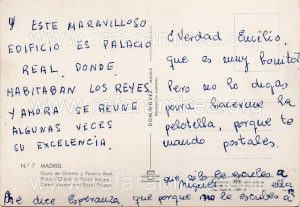 y ESTE MARAVILLOSO
EDIFICIO ES PALACIO
REAL, DONDE
HABITABAN LOS REYES
Y AHORA SE REUNE
ALGUNAS VECES
SU EXCELENCIA.
N.º 7 MADRID.
Plaza de Oriente y Palacio Real.
Place d'Orient et Palais Royal.
Orient Square and Royal Palace.
DOMINGUEZ
MADRID
¿Verdad Emilio,
que es muy bonito?
Pero no lo digas
para hacerme la
pelotilla, porque te
mando postales.
que sólo le escribes a
Miguel a ella
Me dice Esperanza que porque no le escribes a
www.rafaramirez